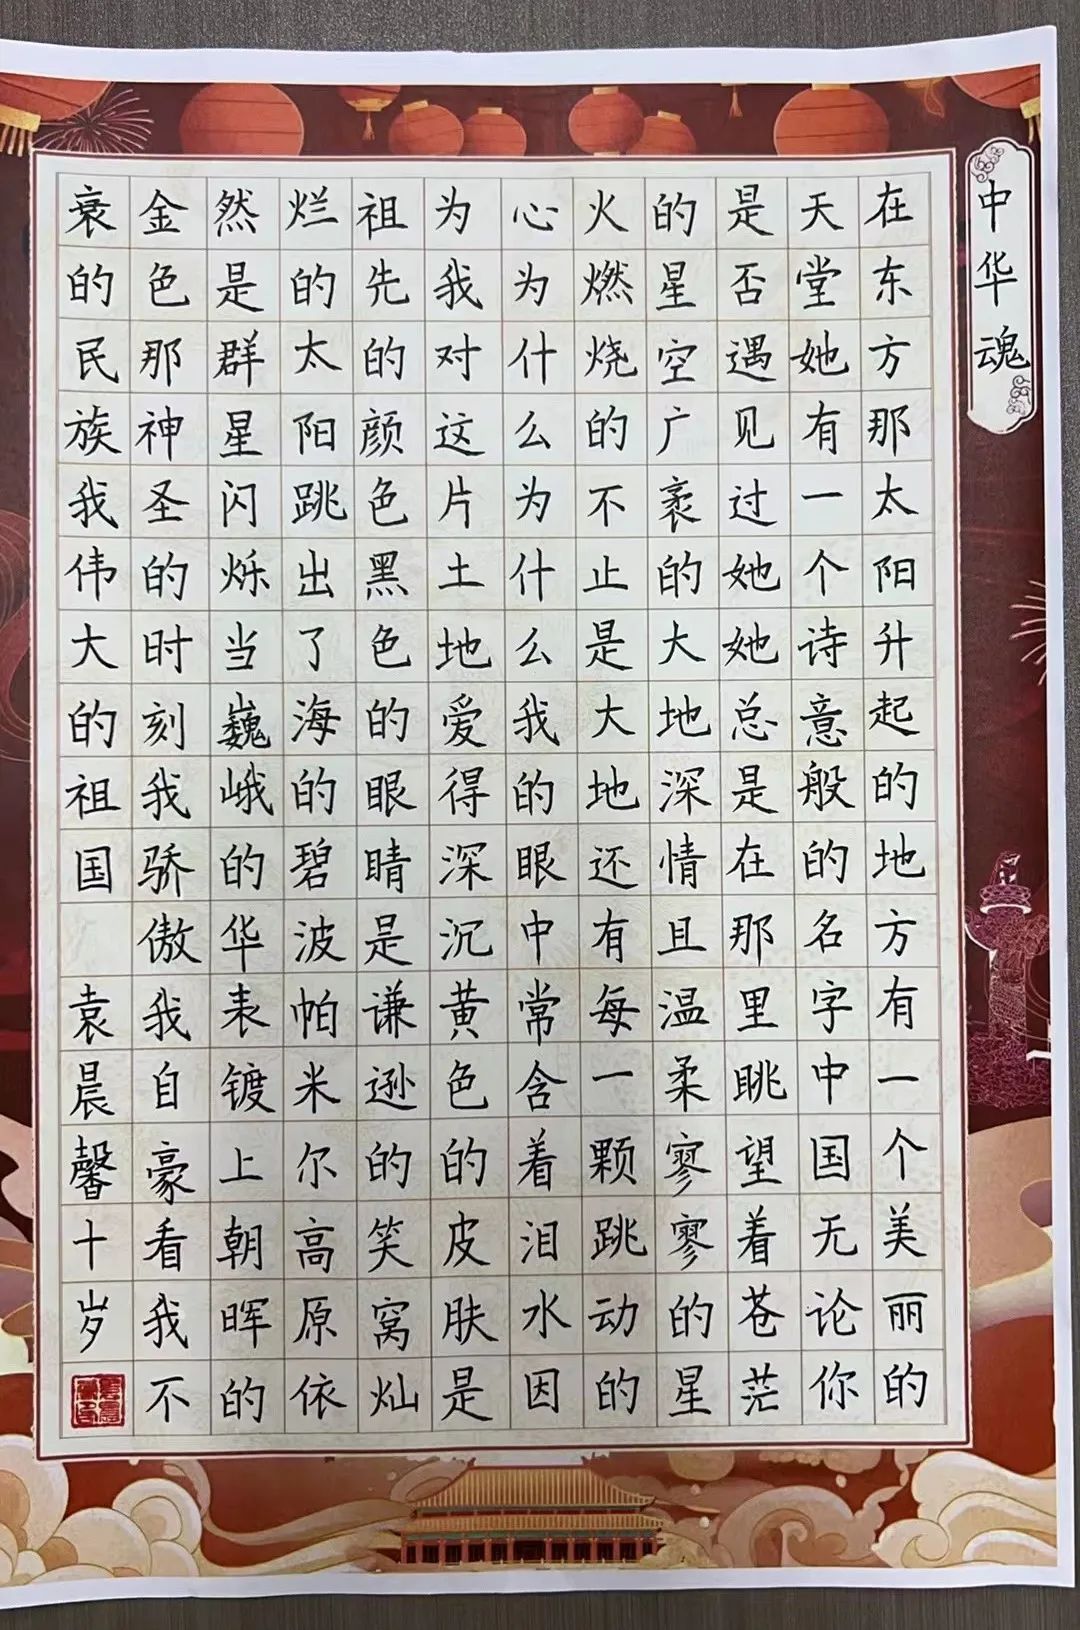 中华魂
在东方那太阳升起的地方有一个美丽的
天堂她有一个诗意般的名字中国无论你
是否遇见过她她总是在那里眺望着苍茫
的星空广袤的大地深情且温柔寥寥的星
火燃烧的不止是大地还有每一颗跳动的
心为什么为什么我的眼中常含着泪水因
为我对这片土地爱得深沉黄色的皮肤是
祖先的颜色黑色的眼睛是谦逊的笑窝灿
烂的太阳跳出了海的碧波帕米尔高原依
然是群星闪烁当巍峨的华表镀上朝晖的
金色那神圣的时刻我骄傲我自豪看我不
衰的民族我伟大的祖国
袁晨馨十岁